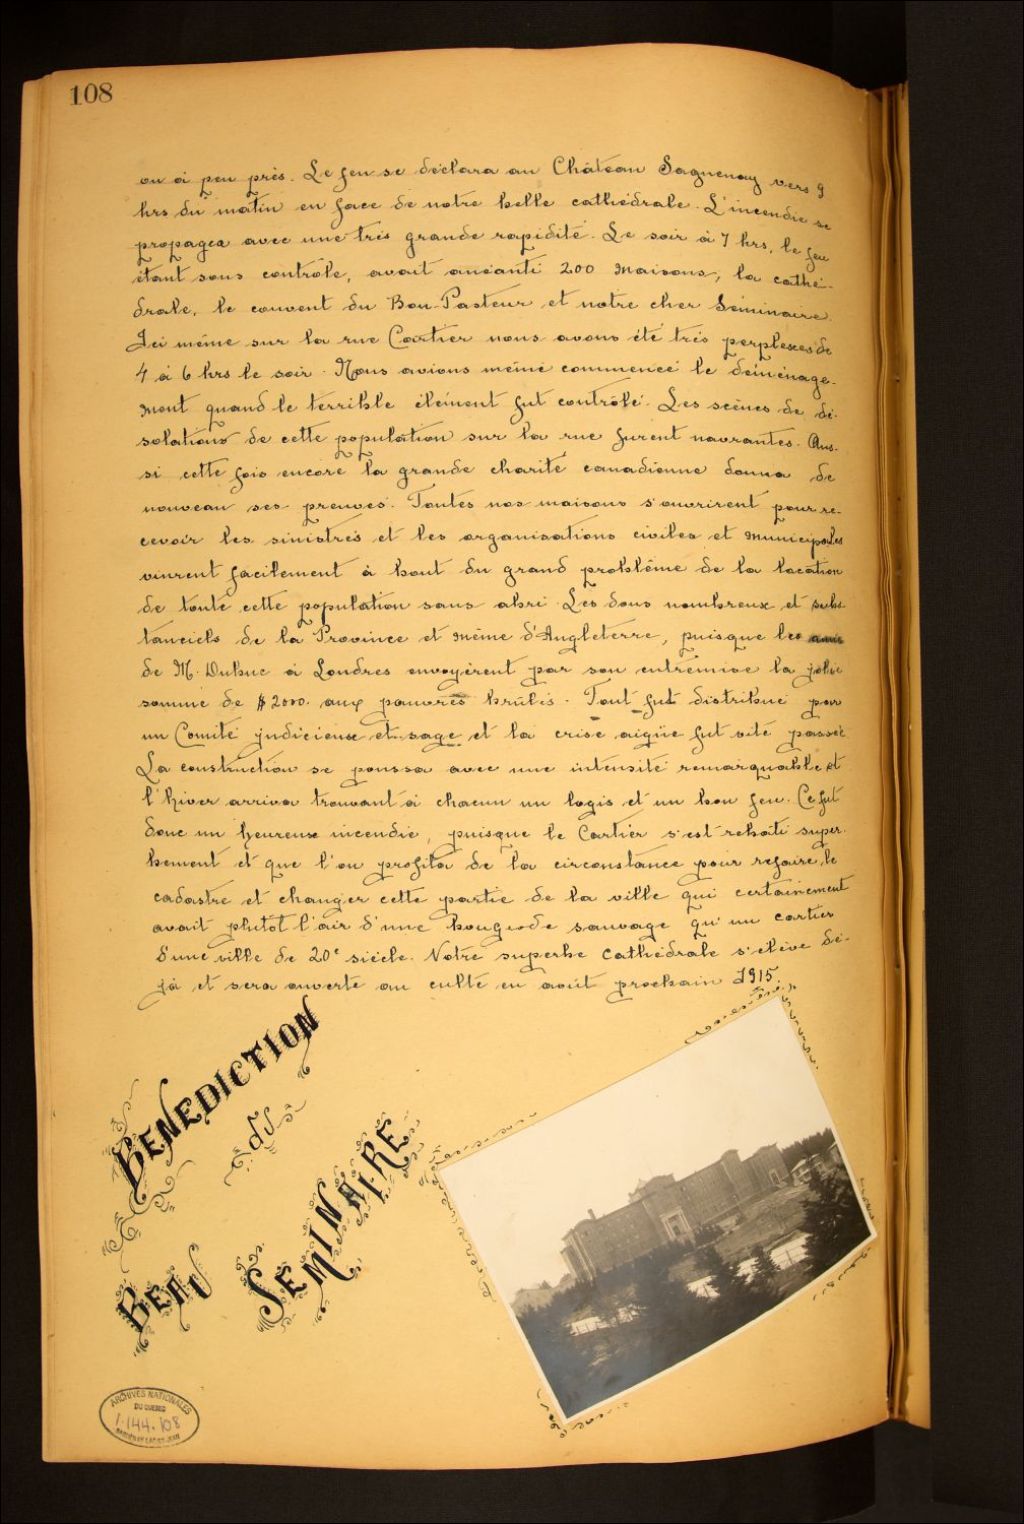 108
ou à peu près. Le feu se déclara au Château Saguenay vers 9
hrs du matin en face de notre belle cathédrale. L'incendie se
propagea avec une très grande rapidité. Le soir à 7 hrs, le feu
étant sous contrôle, avait anéanti 200 maisons, la cathé-
drale, le couvent du Bon-Pasteur et notre cher Séminaire.
Ici même sur la rue Cartier nous avons été très perplexes de
4 à 6 hrs le soir. Nous avions même commencé le déménage-
ment quand le terrible élément fut contrôlé. Les scènes de dé-
solations de cette population sur la rue furent navrantes. Aus-
si cette fois encore la grande charité canadienne donna de
nouveau ses preuves. Toutes nos maisons s'ouvrirent pour re-
cevoir les sinistrés et les organisations civiles et municipales
vinrent facilement à bout du grand problème de la location
de toute cette population sans abri. Les dons nombreux et subs-
tanciels de la Province et même d'Angleterre, puisque les amis
de M. Dubuc à Londres envoyèrent par son entremise la jolie
somme de $2000. aux pauvres brûlés. Tout fut distribué par
un Comité judicieux et sage et la crise aigüe fut vite passée
La construction se poussa avec une intensité remarquable et
l'hiver arriva trouvant à chacun un logis et un bon feu. Ce fut
donc un heureux incendie, puisque le Cartier s'est rebâti super-
bement et que l'on profita de la circonstance pour refaire le
cadastre et changer cette partie de la ville qui certainement
avait plutôt l'air d'une bourgade sauvage qu'un cartier
d'une ville de 20e siècle. Notre superbe Cathédrale s'élève dé-
jà et sera ouverte au culte en août prochain 1915.
BENEDICTION
DU
BEAU
SEMINAIRE
ARCHIVES NATIONALES
DU QUEBEC
1.144.108